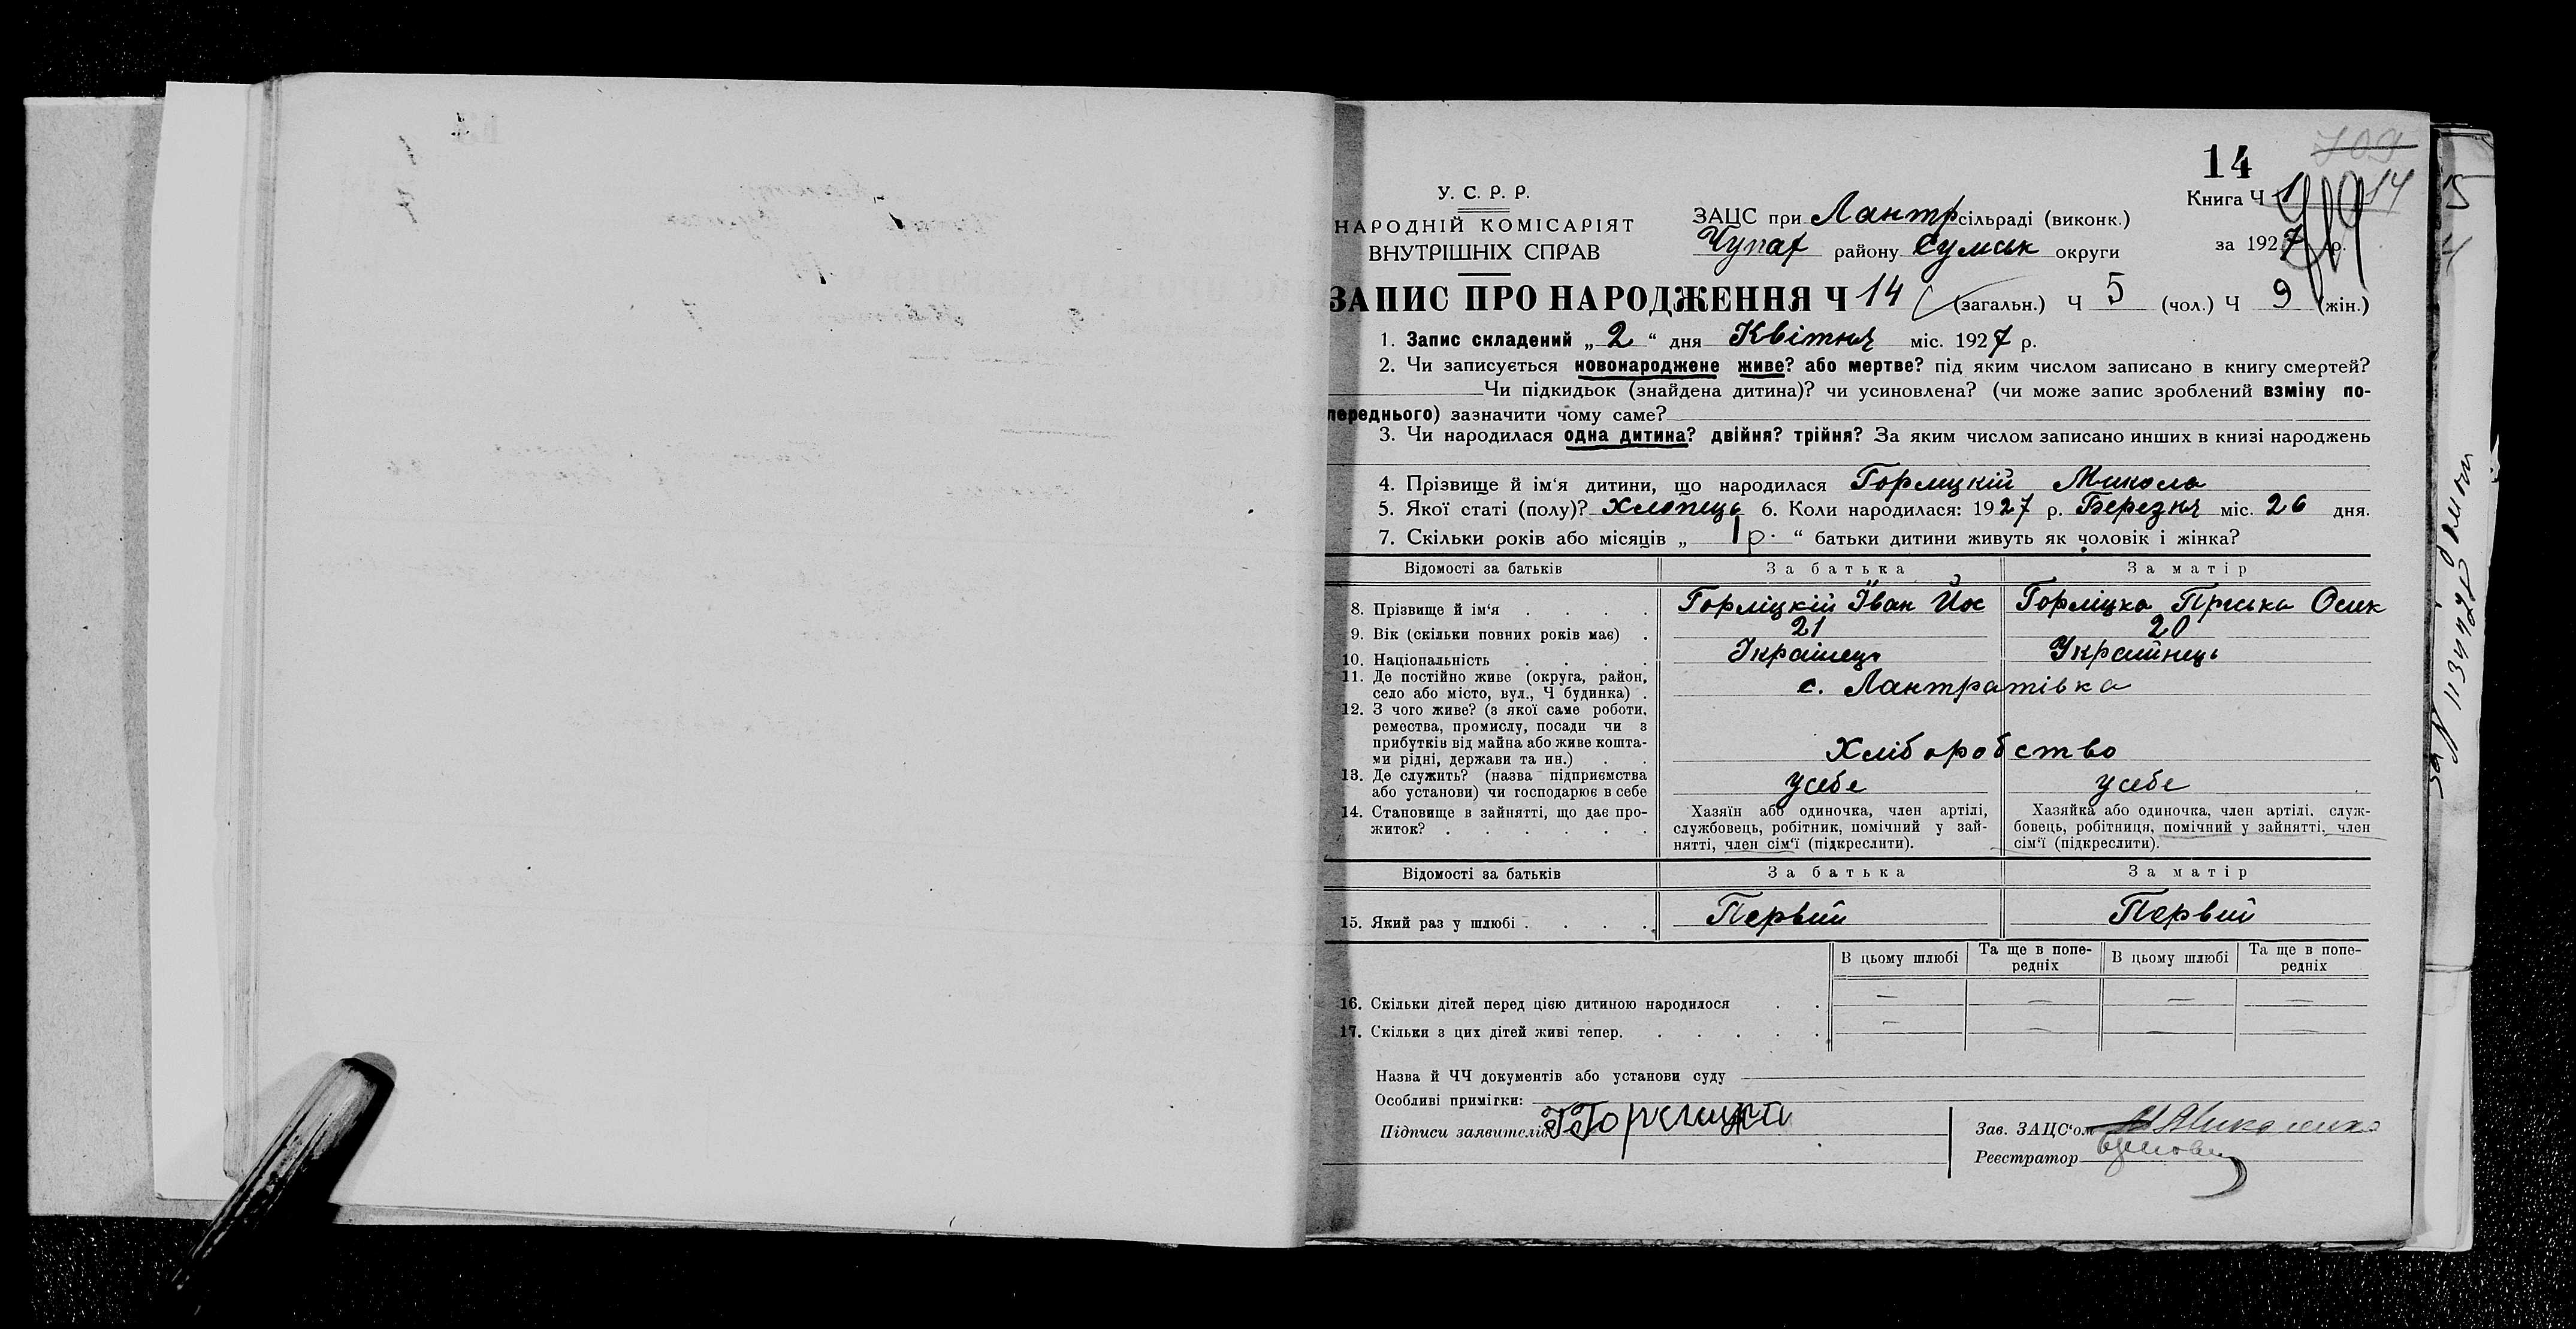 14
709
14
У. С. Р. Р.
НАРОДНІЙ КОМІСАРІЯТ
ВНУТРІШНІХ СПРАВ
ЗАЦС при Лантр сільраді (виконк.)
Чупах району Сумськ округи
Книга Ч 1
за 1927 р.
ЗАПИС ПРО НАРОДЖЕННЯ Ч 14 (загальн.) Ч 5 (чол.) Ч 9 (жін.)
1. Запис складений „ 2 “ дня Квітня міс. 1927 р.
2. Чи записується новонароджене живе? або мертве? під яким числом записано в книгу смертей?
Чи підкидьок (знайдена дитина)? чи усиновлена? (чи може запис зроблений взміну по-
переднього) зазначити чому саме?
3. Чи народилася одна дитина? двійня? трійня? За яким числом записано инших в книзі народжень
4. Прізвище й ім‘я дитини, що народилася Горлицкій Микола
5. Якої статі (полу)? Хлопець 6. Коли народилася: 1927 р. Березня міс. 26 дня.
7. Скільки років або місяців „ 1 р. “ батьки дитини живуть як чоловік і жінка?
Відомості за батьків За батька За матір
8. Прізвище й ім‘я Горліцкій Іван Йос Горліцка Приська Осик
9. Вік (скільки повних років має) 21 20
10. Національність Украінець Украйнець
11. Де постійно живе (округа, район,
село або місто, вул., Ч будинка) с. Лантратівка
12. З чого живе? (з якої саме роботи,
ремества, промислу, посади чи з
прибутків від майна або живе кошта-
ми рідні, держави та ин.) Хліборобство
13. Де служить? (назва підприємства
або установи) чи господарює в себе усебе усебе
14. Становище в зайнятті, що дає про-
житок?
Хазяїн або одиночка, член артілі,
службовець, робітник, помічний у зай-
нятті, член сім‘ї (підкреслити).
Хазяйка або одиночка, член артілі, служ-
бовець, робітниця, помічний у зайнятті, член
сім‘ї (підкреслити).
Відомості за батьків За батька За матір
15. Який раз у шлюбі Первий Первий
В цьому шлюбі Та ще в попе-
редніх В цьому шлюбі Та ще в попе-
редніх
16. Скільки дітей перед цією дитиною народилося — — — —
17. Скільки з цих дітей живі тепер. — — — —
Назва й ЧЧ документів або установи суду
Особливі примітки:
Підписи заявителів
Зав. ЗАЦС‘ом
Реєстратор